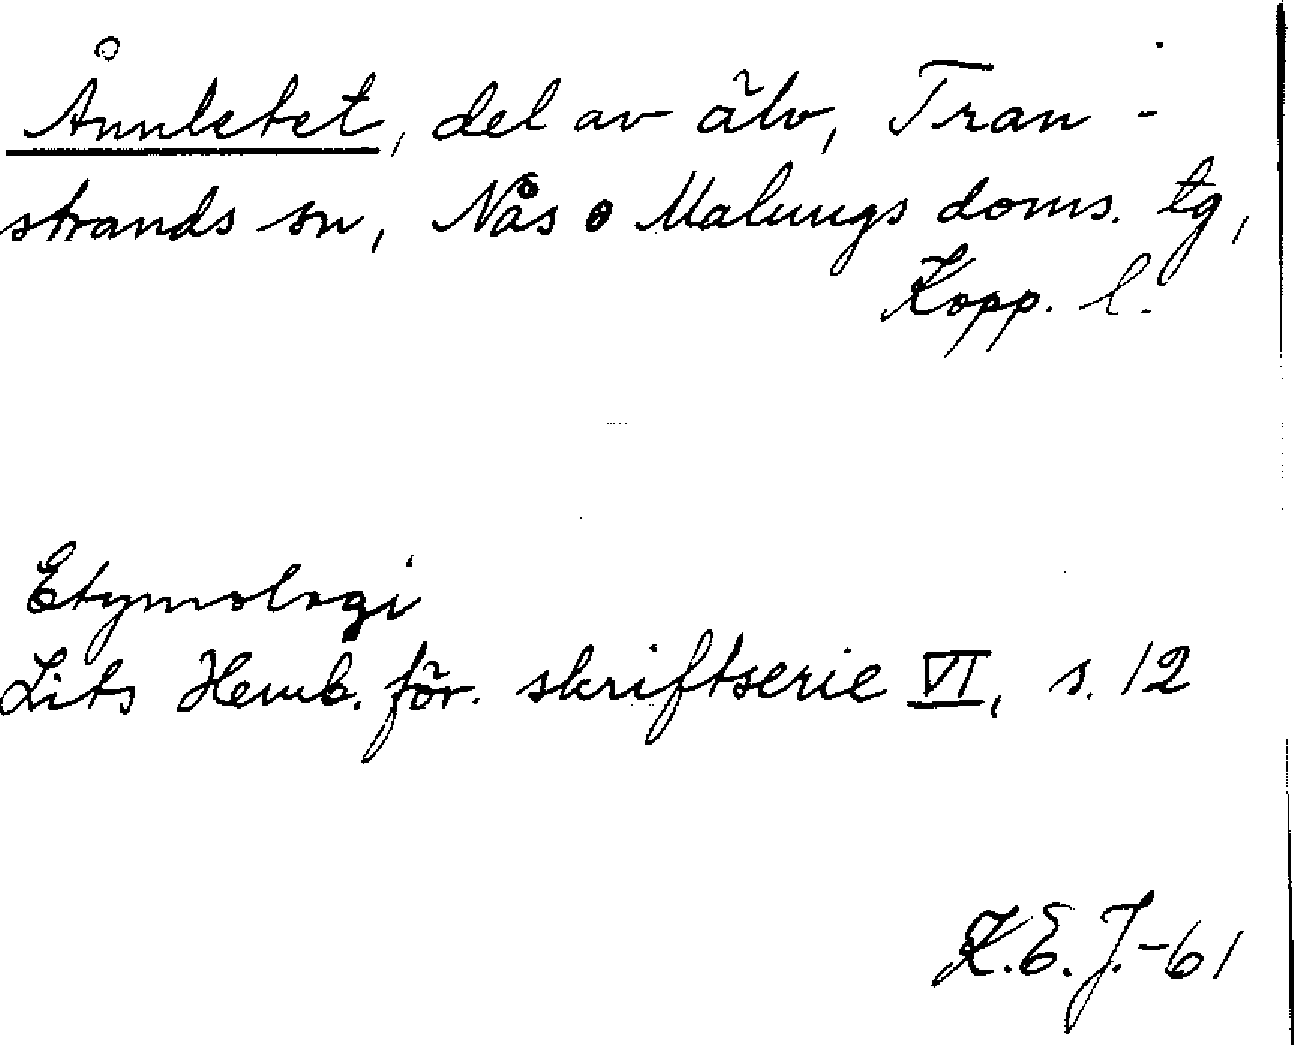 Ånnletet, del av älv, Tran-
strands sn, Nås o Malungs doms. tg,
Kopp. l.
Etymologi
Lits Hemb. för. skriftserie VI, s. 12
K.E.J.-61